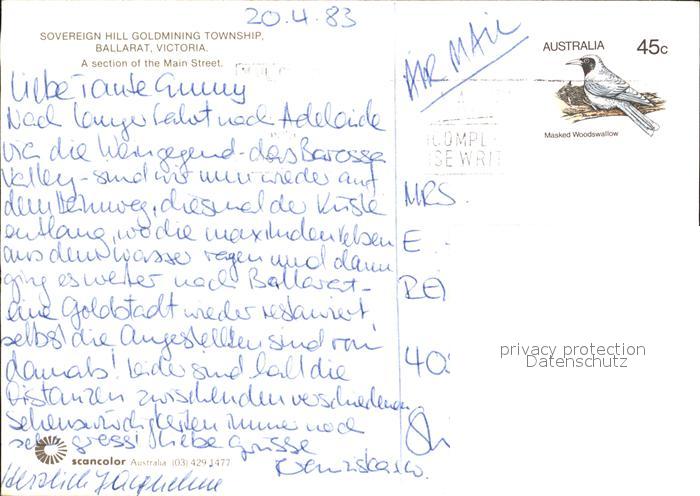 20.4.83
SOVEREIGN HILL GOLDMINING TOWNSHIP,
BALLARAT, VICTORIA.
A section of the Main Street.
AIR MAIL
AUSTRALIA 45c
Masked Woodswallow
Liebe Tante Emmy
Nach langer Fahrt nach Adelaide
via die Weingegend - das Barossa
Valley - sind wir nun wieder auf
dem Heimweg, diesmal der Küste
entlang, wo die maximalen Felsen
aus dem Wasser ragen und dann
ging es weiter nach Ballarat -
eine Goldstadt wieder restauriert,
selbst die Angestellten sind von
damals! Leider sind halt die
Distanzen zwischen den verschiedenen
Sehenswürdigkeiten immer noch
sehr gross! Liebe Grüsse
MRS.
E
RE
40
privacy protection
Datenschutz
scancolor Australia (03) 429 1477
Herzlich Jacqueline